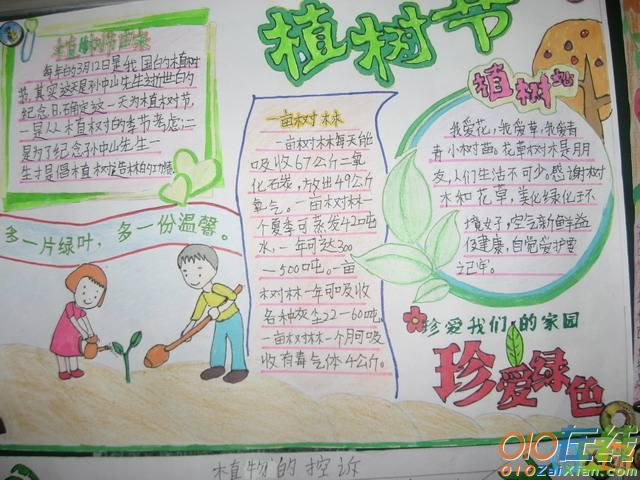 植树节
植树节由来
每年的3月12日是我国的植树
节,其实这天是孙中山先生逝世的
纪念日,确定这一天为植树节,
一是从植树的季节考虑;二
是为了纪念孙中山先生一
生才是倡植树造林的功德
多一片绿叶,多一份温馨。
一亩树林
一亩树林每天能
吸收67公斤二氧
化石炭,放出49公斤
氧气。一亩树林一
个夏季可蒸发420吨
水,一年可达300
—500吨。一亩
树林一年可吸收
各种灰尘22—60吨。
一亩树林一个月可吸
收有毒气体4公斤。
植树
我爱花,我爱草,我爱青
青小树苗。花草树木是朋
友,人们生活不可少。感谢树
木和花草,美化绿化环
境好,空气新鲜益
促健康,自觉爱护要
记牢。
珍爱我们的家园
珍爱绿色
植物的控诉
010在线
010ZaiXian.com